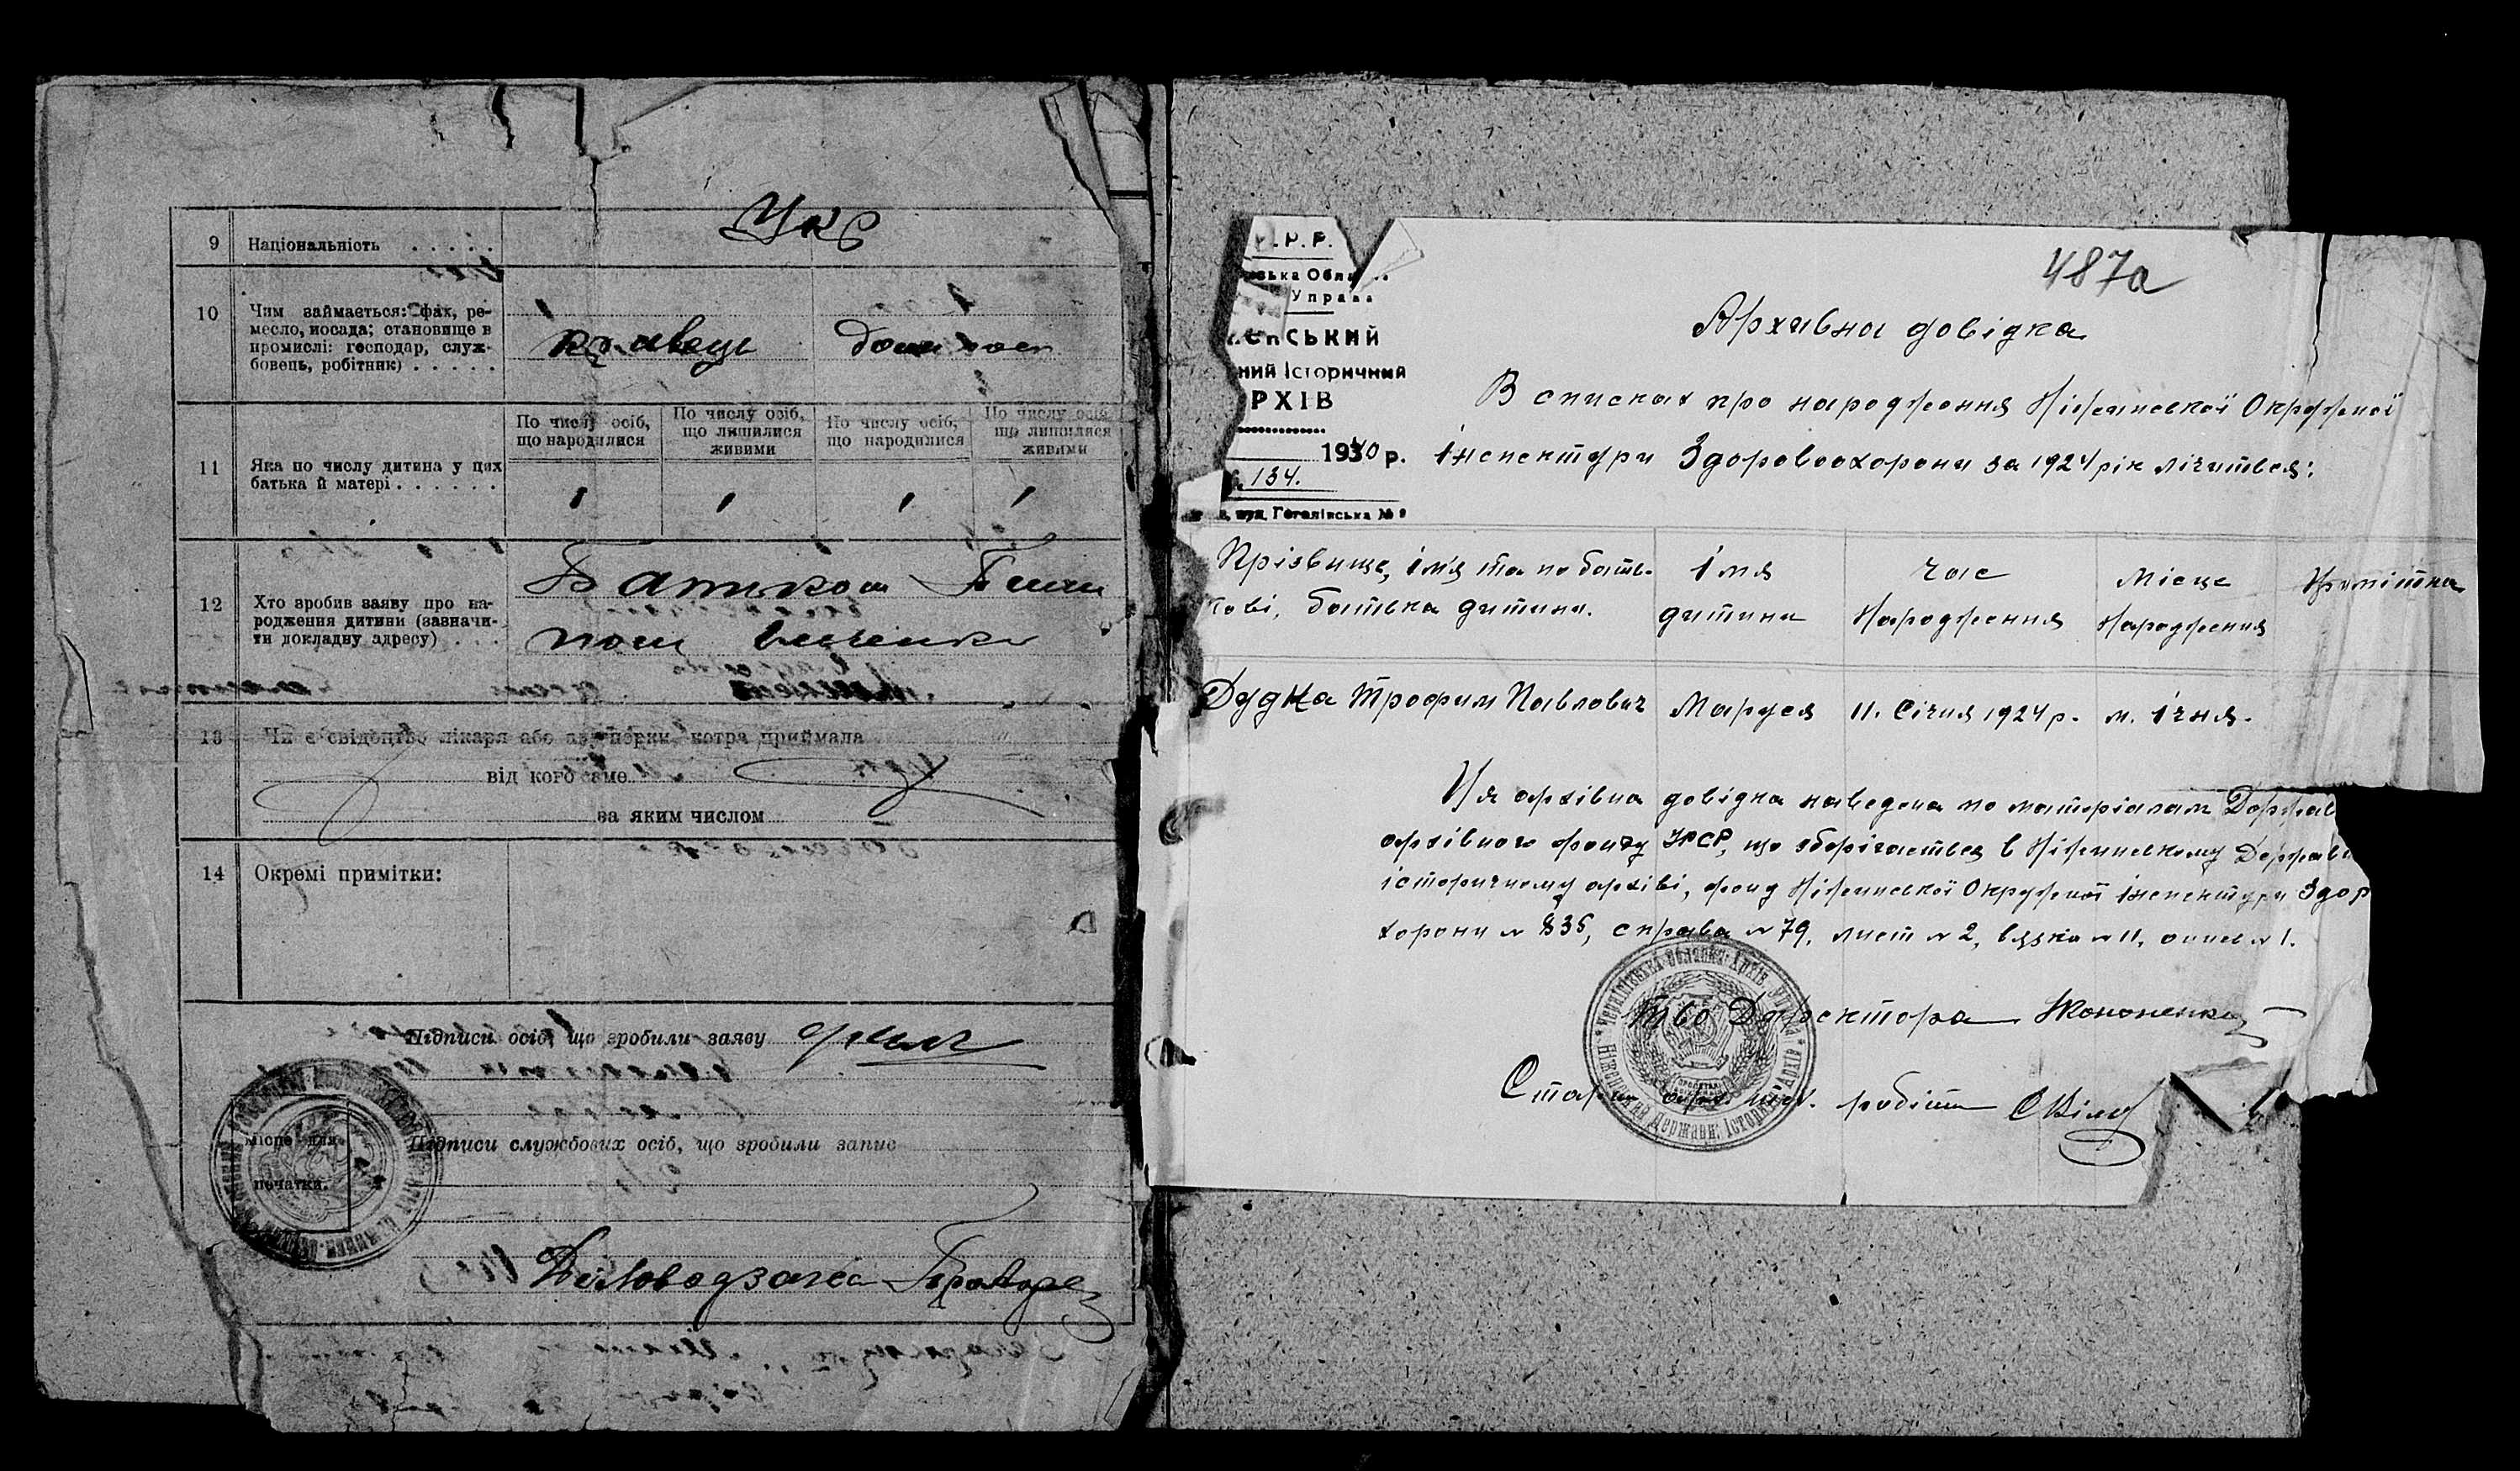 9 Національність . . . . .
Укр
10 Чим займається: фах, ре-
месло, посада; становище в
промислі: господар, служ-
бовець, робітник) . . . . .
кравець
11 Яка по числу дитина у цих
батька й матері . . . . . .
По числу осіб,
що народилися
По числу осіб,
що лишилися
живими
По числу осіб,
що народилися
По числу осіб,
що лишилися
живими
1 1 1 1
12 Хто зробив заяву про на-
родження дитини (зазначи-
ти докладну адресу) . . .
13 Чи є свідоцтво лікаря або акушерки, котра приймала
від кого саме
за яким числом
14 Окремі примітки:
Підписи осіб, що зробили заяву
Підписи службових осіб, що зробили запис
Місце для
печатки.
Діловодзагса
487а
.Р.Р.
ська Обла
Управа
ський
ний Історичний
РХІВ
1940 р.
134.
вул. Гоголівська №
Архивна довідка
В списках про народження Ніженської Окружної
Інспектури Здоровоохорони за 1924 рік лічиться:
Прізвище, імя та по бать-
кові, батька дитини.
Імя
дитини
Час
Народження
Місце
Народження
Примітка
Дудка Трофим Павлович Маруся 11. Січня 1924 р. м. Ічня.
Ця архівна довідка наведена по матеріалам Держав
архівного фонду УРСР, що зберігається в Ніженському Держав
історичному архіві, фонд Ніженської Окружної інспектури Здор
хорони № 835, справа № 79, лист № 2, вязка № 11, опись № 1.
ТВО Директора Кононенко
Старш. арх. наук. робітн
Чернігівська обласна Архів. Управа
Ніженський Державн. Історич. Архів